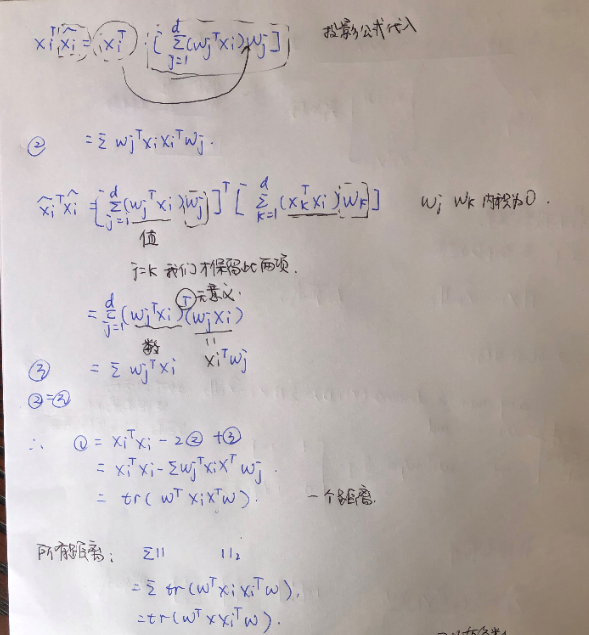 xᵢᵀx̂ᵢ = xᵢᵀ · [ Σ_{j=1}^{d} (wⱼᵀxᵢ) wⱼ ] 投影公式代入
② = Σ wⱼᵀxᵢxᵢᵀwⱼ.
x̂ᵢᵀx̂ᵢ = [ Σ_{j=1}^{d} (wⱼᵀxᵢ) wⱼ ]ᵀ [ Σ_{k=1}^{d} (xₖᵀxᵢ) wₖ ] wⱼ wₖ 内积为0.
值
j=k 我们才保留此两项.
= Σ_{j=1}^{d} (wⱼᵀxᵢ)^T (wⱼxᵢ) 无意义.
数 || 
③ = Σ wⱼᵀxᵢ xᵢᵀwⱼ
②=③
∴ ① = xᵢᵀxᵢ - 2② + ③
= xᵢᵀxᵢ - Σwⱼᵀxᵢxᵀwⱼ
= tr( wᵀxᵢxᵀw ). 一个距离
所有距离: Σ|| ||₂
= Σ tr(wᵀxᵢxᵢᵀw).
= tr(wᵀxxᵢᵀw).